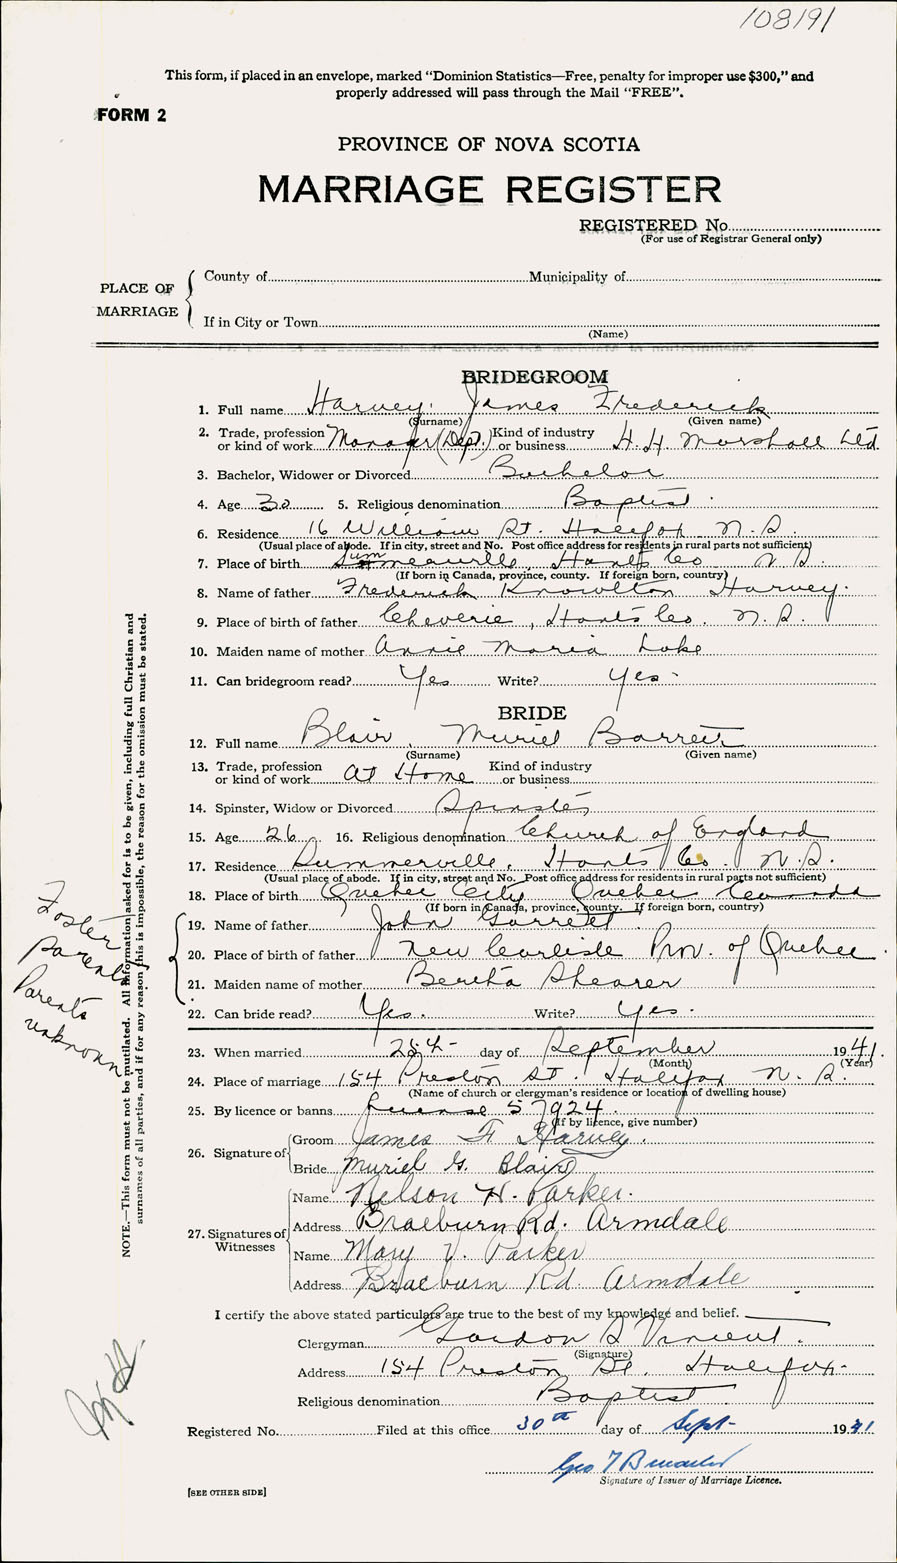 108191
This form, if placed in an envelope, marked “Dominion Statistics—Free, penalty for improper use $300,” and
properly addressed will pass through the Mail “FREE”.
FORM 2
PROVINCE OF NOVA SCOTIA
MARRIAGE REGISTER
REGISTERED No.
(For use of Registrar General only)
PLACE OF MARRIAGE
County of Municipality of
If in City or Town
(Name)
BRIDEGROOM
1. Full name Harvey James Frederick
(Surname) (Given name)
2. Trade, profession or kind of work Manager (Dept.) Kind of industry or business H. H. Marshall Ltd
3. Bachelor, Widower or Divorced Bachelor
4. Age 30 5. Religious denomination Baptist
6. Residence 16 William St. Halifax N.S.
(Usual place of abode. If in city, street and No. Post office address for residents in rural parts not sufficient)
7. Place of birth Summerville, Hants Co N S.
(If born in Canada, province, county. If foreign born, country)
8. Name of father Frederick Knowlton Harvey.
9. Place of birth of father Cheverie, Hants Co. N.S.
10. Maiden name of mother Annie Maria Lake
11. Can bridegroom read? Yes Write? Yes.
BRIDE
12. Full name Blair, Muriel Barrett
(Surname) (Given name)
13. Trade, profession or kind of work At Home Kind of industry or business
14. Spinster, Widow or Divorced Spinster
15. Age 26 16. Religious denomination Church of England
17. Residence Summerville, Hants Co. N.S.
(Usual place of abode. If in city, street and No. Post office address for residents in rural parts not sufficient)
18. Place of birth Quebec City Quebec Canada
(If born in Canada, province, county. If foreign born, country)
19. Name of father John Garrett
20. Place of birth of father New Carlisle Prov. of Quebec
21. Maiden name of mother Bertha Shearer
22. Can bride read? Yes. Write? Yes.
23. When married day of September 1941.
(Month) (Year)
24. Place of marriage 154 Preston St. Halifax N.S.
(Name of church or clergyman's residence or location of dwelling house)
25. By licence or banns License 57924.
(If by licence, give number)
26. Signature of Groom James F. Harvey.
Bride Muriel G. Blair
27. Signatures of Witnesses
Name Nelson H. Parker.
Address Braeburn Rd. Armdale
Name Mary V. Parker
Address Braeburn Rd Armdale
I certify the above stated particulars are true to the best of my knowledge and belief.
Clergyman Gordon Vincent.
(Signature)
Address 154 Preston St. Halifax
Religious denomination Baptist
Registered No. Filed at this office 30th day of Sept- 1941
Geo
Signature of Issuer of Marriage Licence.
[SEE OTHER SIDE]
NOTE.—This form must not be mutilated. All information asked for is to be given, including full Christian and
surnames of all parties, and if for any reason this is impossible, the reason for the omission must be stated.
Foster
Parents
Parents
unknown